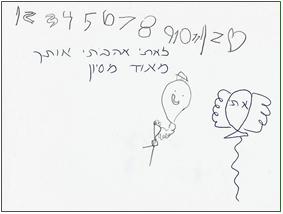 1 2 3 4 5 6 7 8 9 10
לאתי אהבתי אותך
מאוד מסיון
את